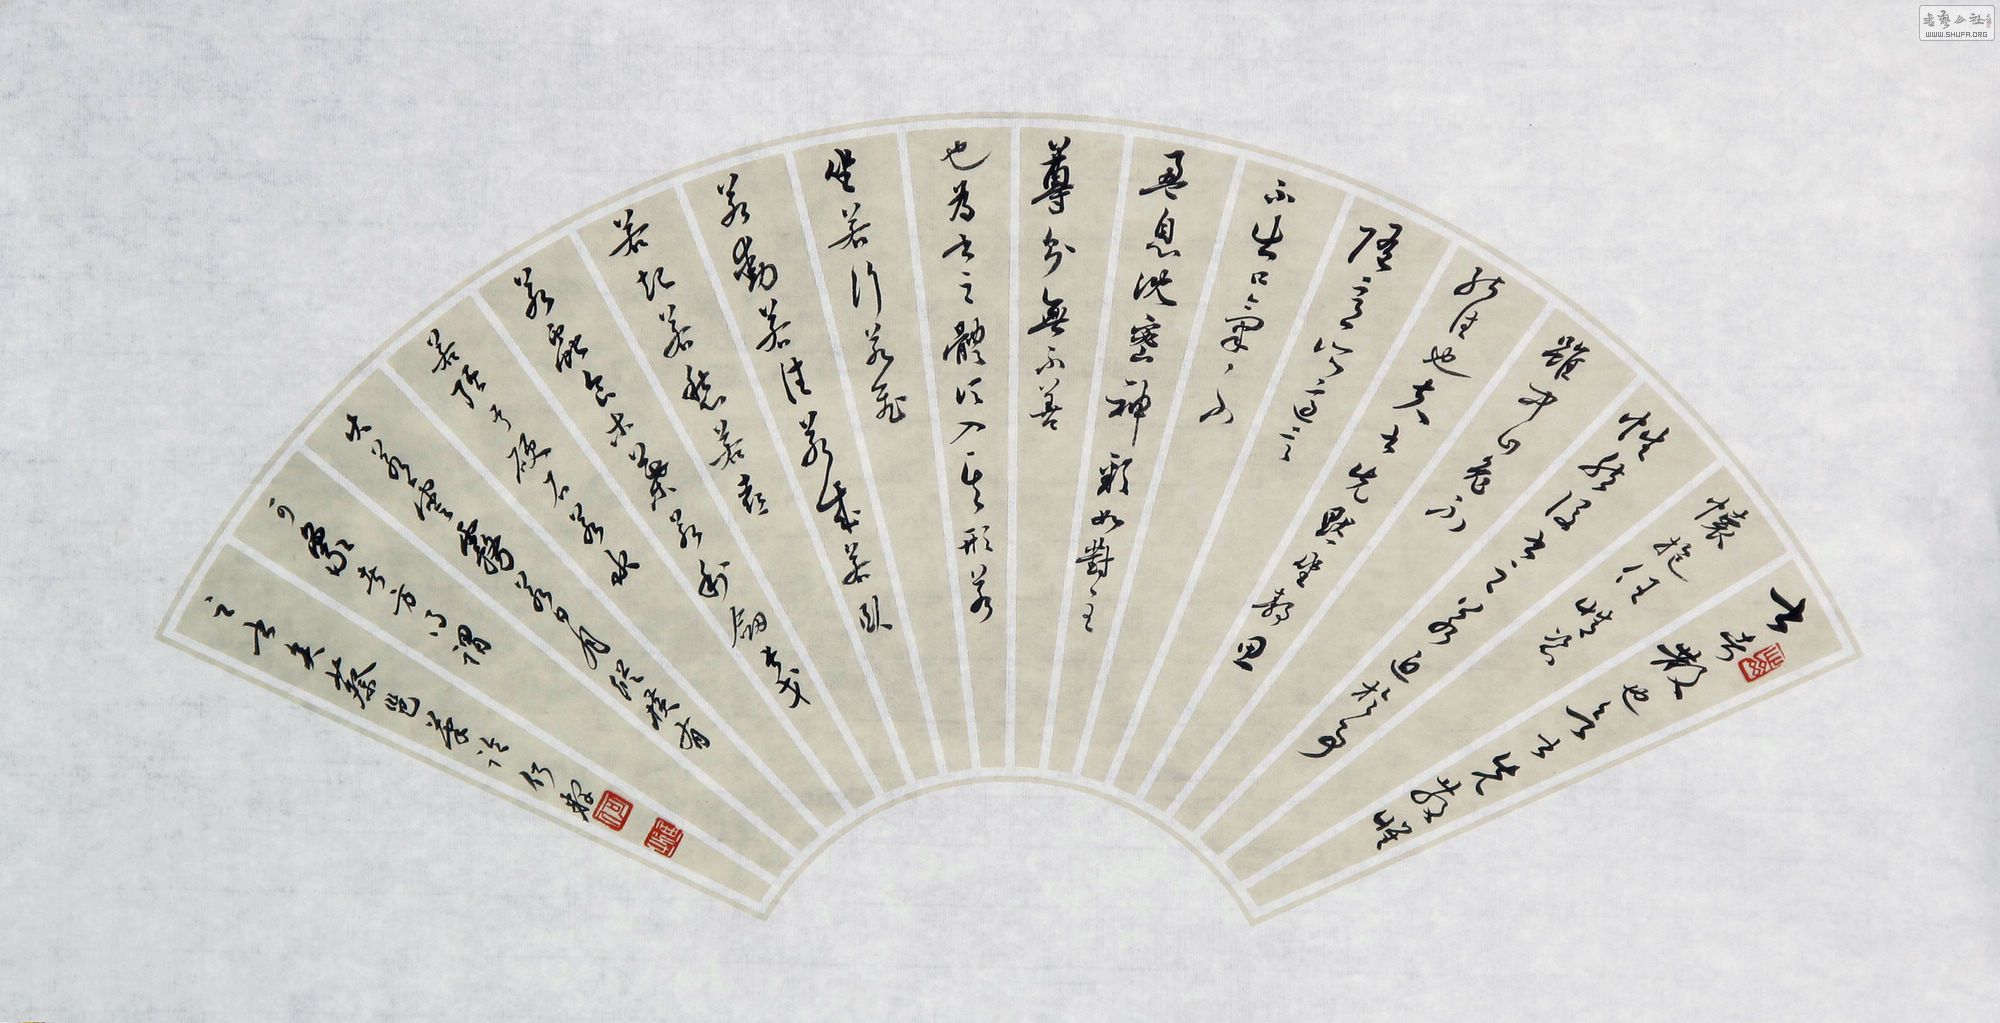 書者散也欲書先散
懷抱任情恣
性然後書之若迫於事
雖中山毫不
能佳也夫書先默坐靜思
隨意所適言
不出口氣不
盈息沈密神彩如對至
尊則無不善
也為書之體須入其形若
坐若行若飛
若動若往若來若臥
若起若愁若喜
若蟲食木葉若利劍長戈
若強弓硬矢若水
火若雲霧若日月縱橫有
可象者方得謂
之書矣蔡邕筆論
書藝公社
WWW.SHUFA.ORG